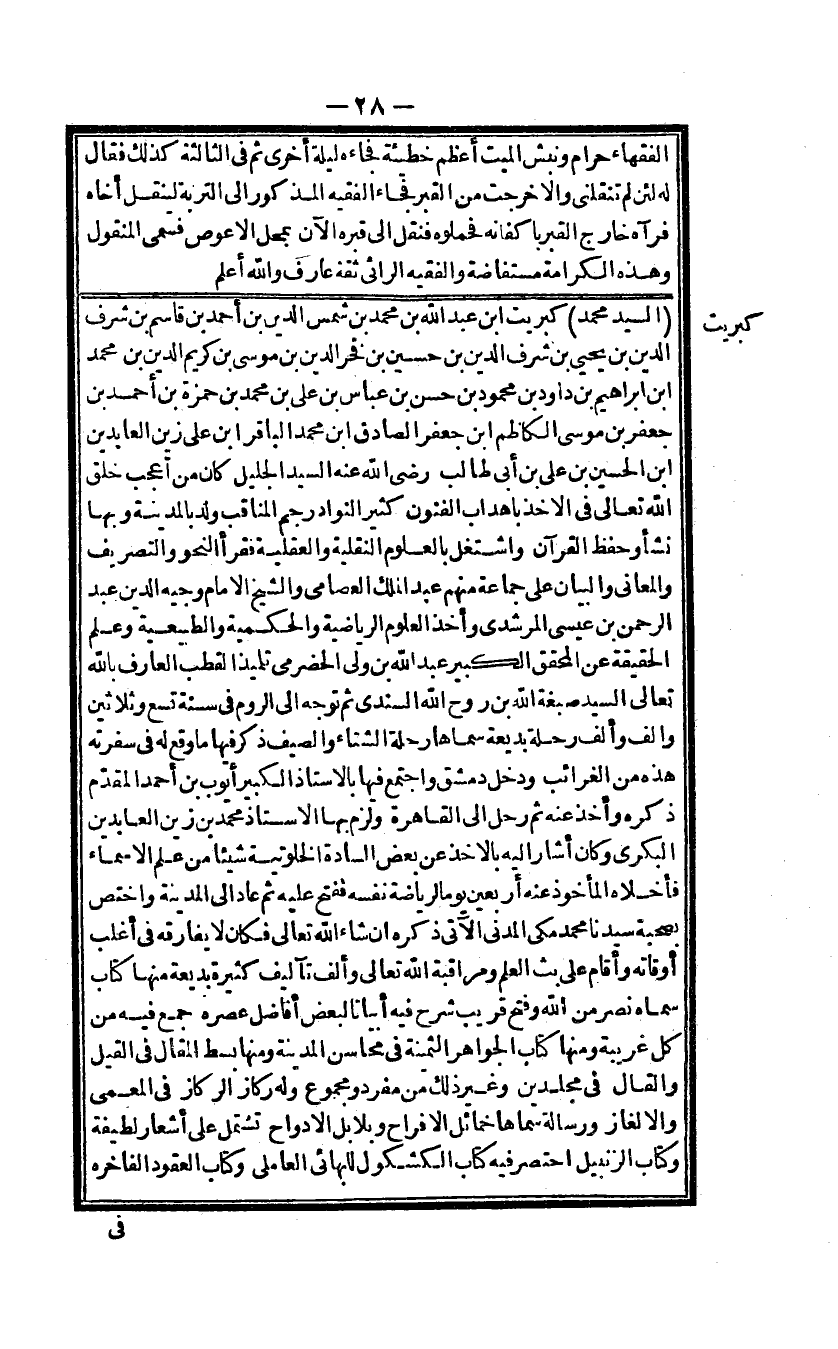 — ٢٨ —
الفقهاء حرام ونبش الميت أعظم خطيئة فجاءه ليلة أخرى ثم فى الثالثة كذلك فقال
له لئن لم تنقلنى والا خرجت من القبر فجاء الفقيه المذكور الى التربة لينقل أخاه
فرآه خارج القبر باكفانه فحملوه فنقل الى قبره الآن بمحل الاعوص فسمى المنقول
وهذه الكرامة مستفاضة والفقيه الرائى ثقة عارف والله أعلم
كبريت
(السيد محمد) كبريت ابن عبد الله بن محمد بن شمس الدين بن أحمد بن قاسم بن شرف
الدين بن يحيى بن شرف الدين بن حسين بن فخر الدين بن موسى بن كريم الدين بن محمد
ابن ابراهيم بن داود بن محمود بن حسن بن عباس بن على بن محمد بن حمزة بن أحمد بن
جعفر بن موسى الكاظم ابن جعفر الصادق ابن محمد الباقر ابن على زين العابدين
ابن الحسين بن على بن أبى طالب رضى الله عنه السيد الجليل كان من أعجب خلق
الله تعالى فى الاخذ باهداب الفنون كثير النوادر جم المناقب ولد بالمدينة وبها
نشأ وحفظ القرآن واشتغل بالعلوم النقلية والعقلية نقرأ النحو والتصريف
والمعانى والبيان على جماعة منهم عبد الملك العصامى والشيخ الامام وجيه الدين عبد
الرحمن بن عيسى المرشدى وأخذ العلوم الرياضية والحكمية والطبيعية وعلم
الحقيقة عن المحقق الكبير عبد الله بن ولى الحضرمى تلميذ القطب العارف بالله
تعالى السيد صبغة الله بن روح الله السندى ثم توجه الى الروم فى سنة تسع وثلاثين
والف وألف رحلة بديعة سماها رحلة الشتاء والصيف ذكر فيها ما وقع له فى سفرته
هذه من الغرائب ودخل دمشق واجتمع فيها بالاستاذ الكبير أيوب بن أحمد المقدّم
ذكره وأخذ عنه ثم رحل الى القاهرة ولزم بها الاستاذ محمد بن زين العابدين
البكرى وكان أشار اليه بالاخذ عن بعض السادة الخلوتية شيئا من علم الاسماء
فأخلاه المأخوذ عنه أربعين يوما لرياضة نفسه ففتح عليه ثم عاد الى المدينة واختص
بصحبة سيدنا محمد مكى المدنى الآتى ذكره ان شاء الله تعالى فكان لا يفارقه فى أغلب
أوقاته وأقام على بث العلم ومراقبة الله تعالى وألف تآليف كثيرة بديعة منها كتاب
سماه نصر من الله وفتح قريب شرح فيه أبياتا لبعض أفاضل عصره جمع فيه من
كل غريبة ومنها كتاب الجواهر الثمينة فى محاسن المدينة ومنها بسط المقال فى القيل
والقال فى مجلدين وغير ذلك من مفرد ومجموع وله ركاز الركاز فى المعمى
والالغاز ورسالة سماها خمائل الافراح وبلابل الادواح تشتمل على أشعار لطيفة
وكتاب الزنبيل اختصر فيه كتاب الكشكول للبهائى العاملى وكتاب العقود الفاخره
فى